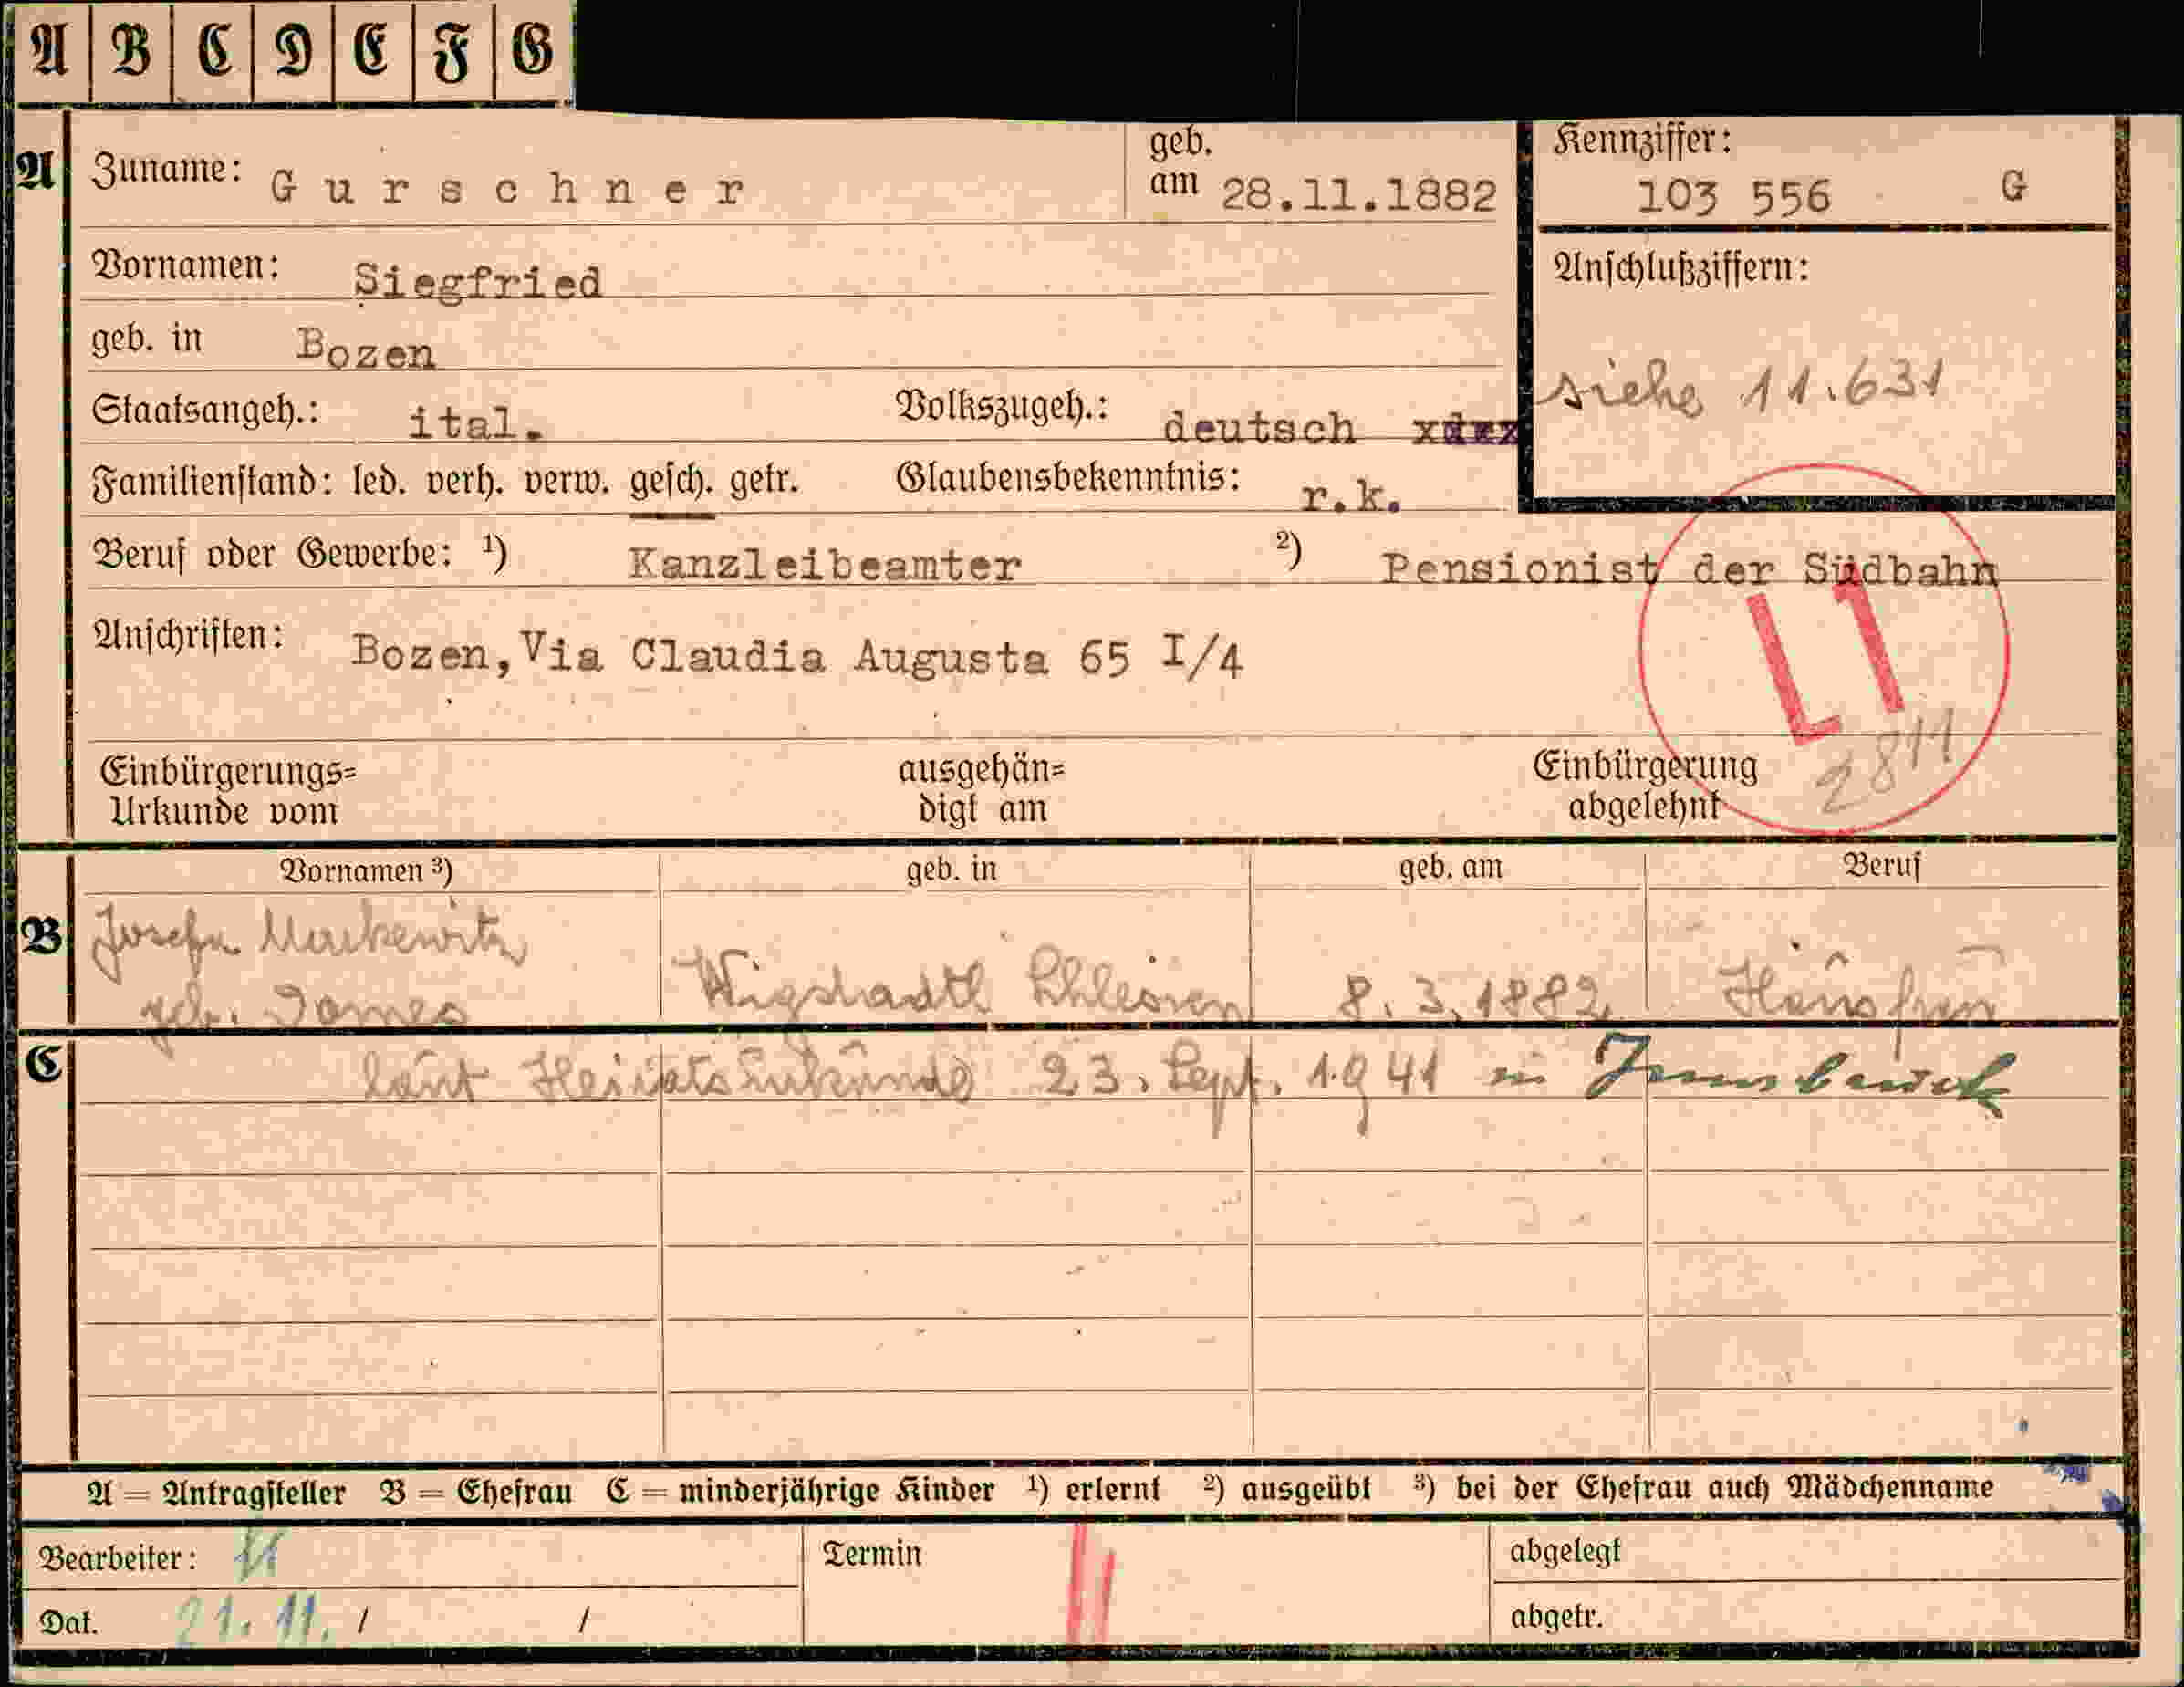 A B C D E F G
A Zuname: Gurschner geb. am 28.11.1882 Kennziffer: 103 556 G
Vornamen: Siegfried Anschlußziffern:
geb. in Bozen siehe 11.631
Staatsangeh.: ital. Volkszugeh.: deutsch
Familienstand: led. verh. verw. gesch. getr. Glaubensbekenntnis: r.k.
Beruf oder Gewerbe: 1) Kanzleibeamter 2) Pensionist der Südbahn
Anschriften: Bozen, Via Claudia Augusta 65 I/4
L1
2811
Einbürgerungs= ausgehän= Einbürgerung
Urkunde vom digt am abgelehnt
Vornamen 3) geb. in geb. am Beruf
B Josefa
geb. Wigstadtl Schlesien 8.3.1882 Hausfrau
C laut Heiratsurkunde 23. Sept. 1941 in Innsbruck
A = Antragsteller B = Ehefrau C = minderjährige Kinder 1) erlernt 2) ausgeübt 3) bei der Ehefrau auch Mädchenname
Bearbeiter: Termin abgelegt
Dat. 21.11. / / abgetr.